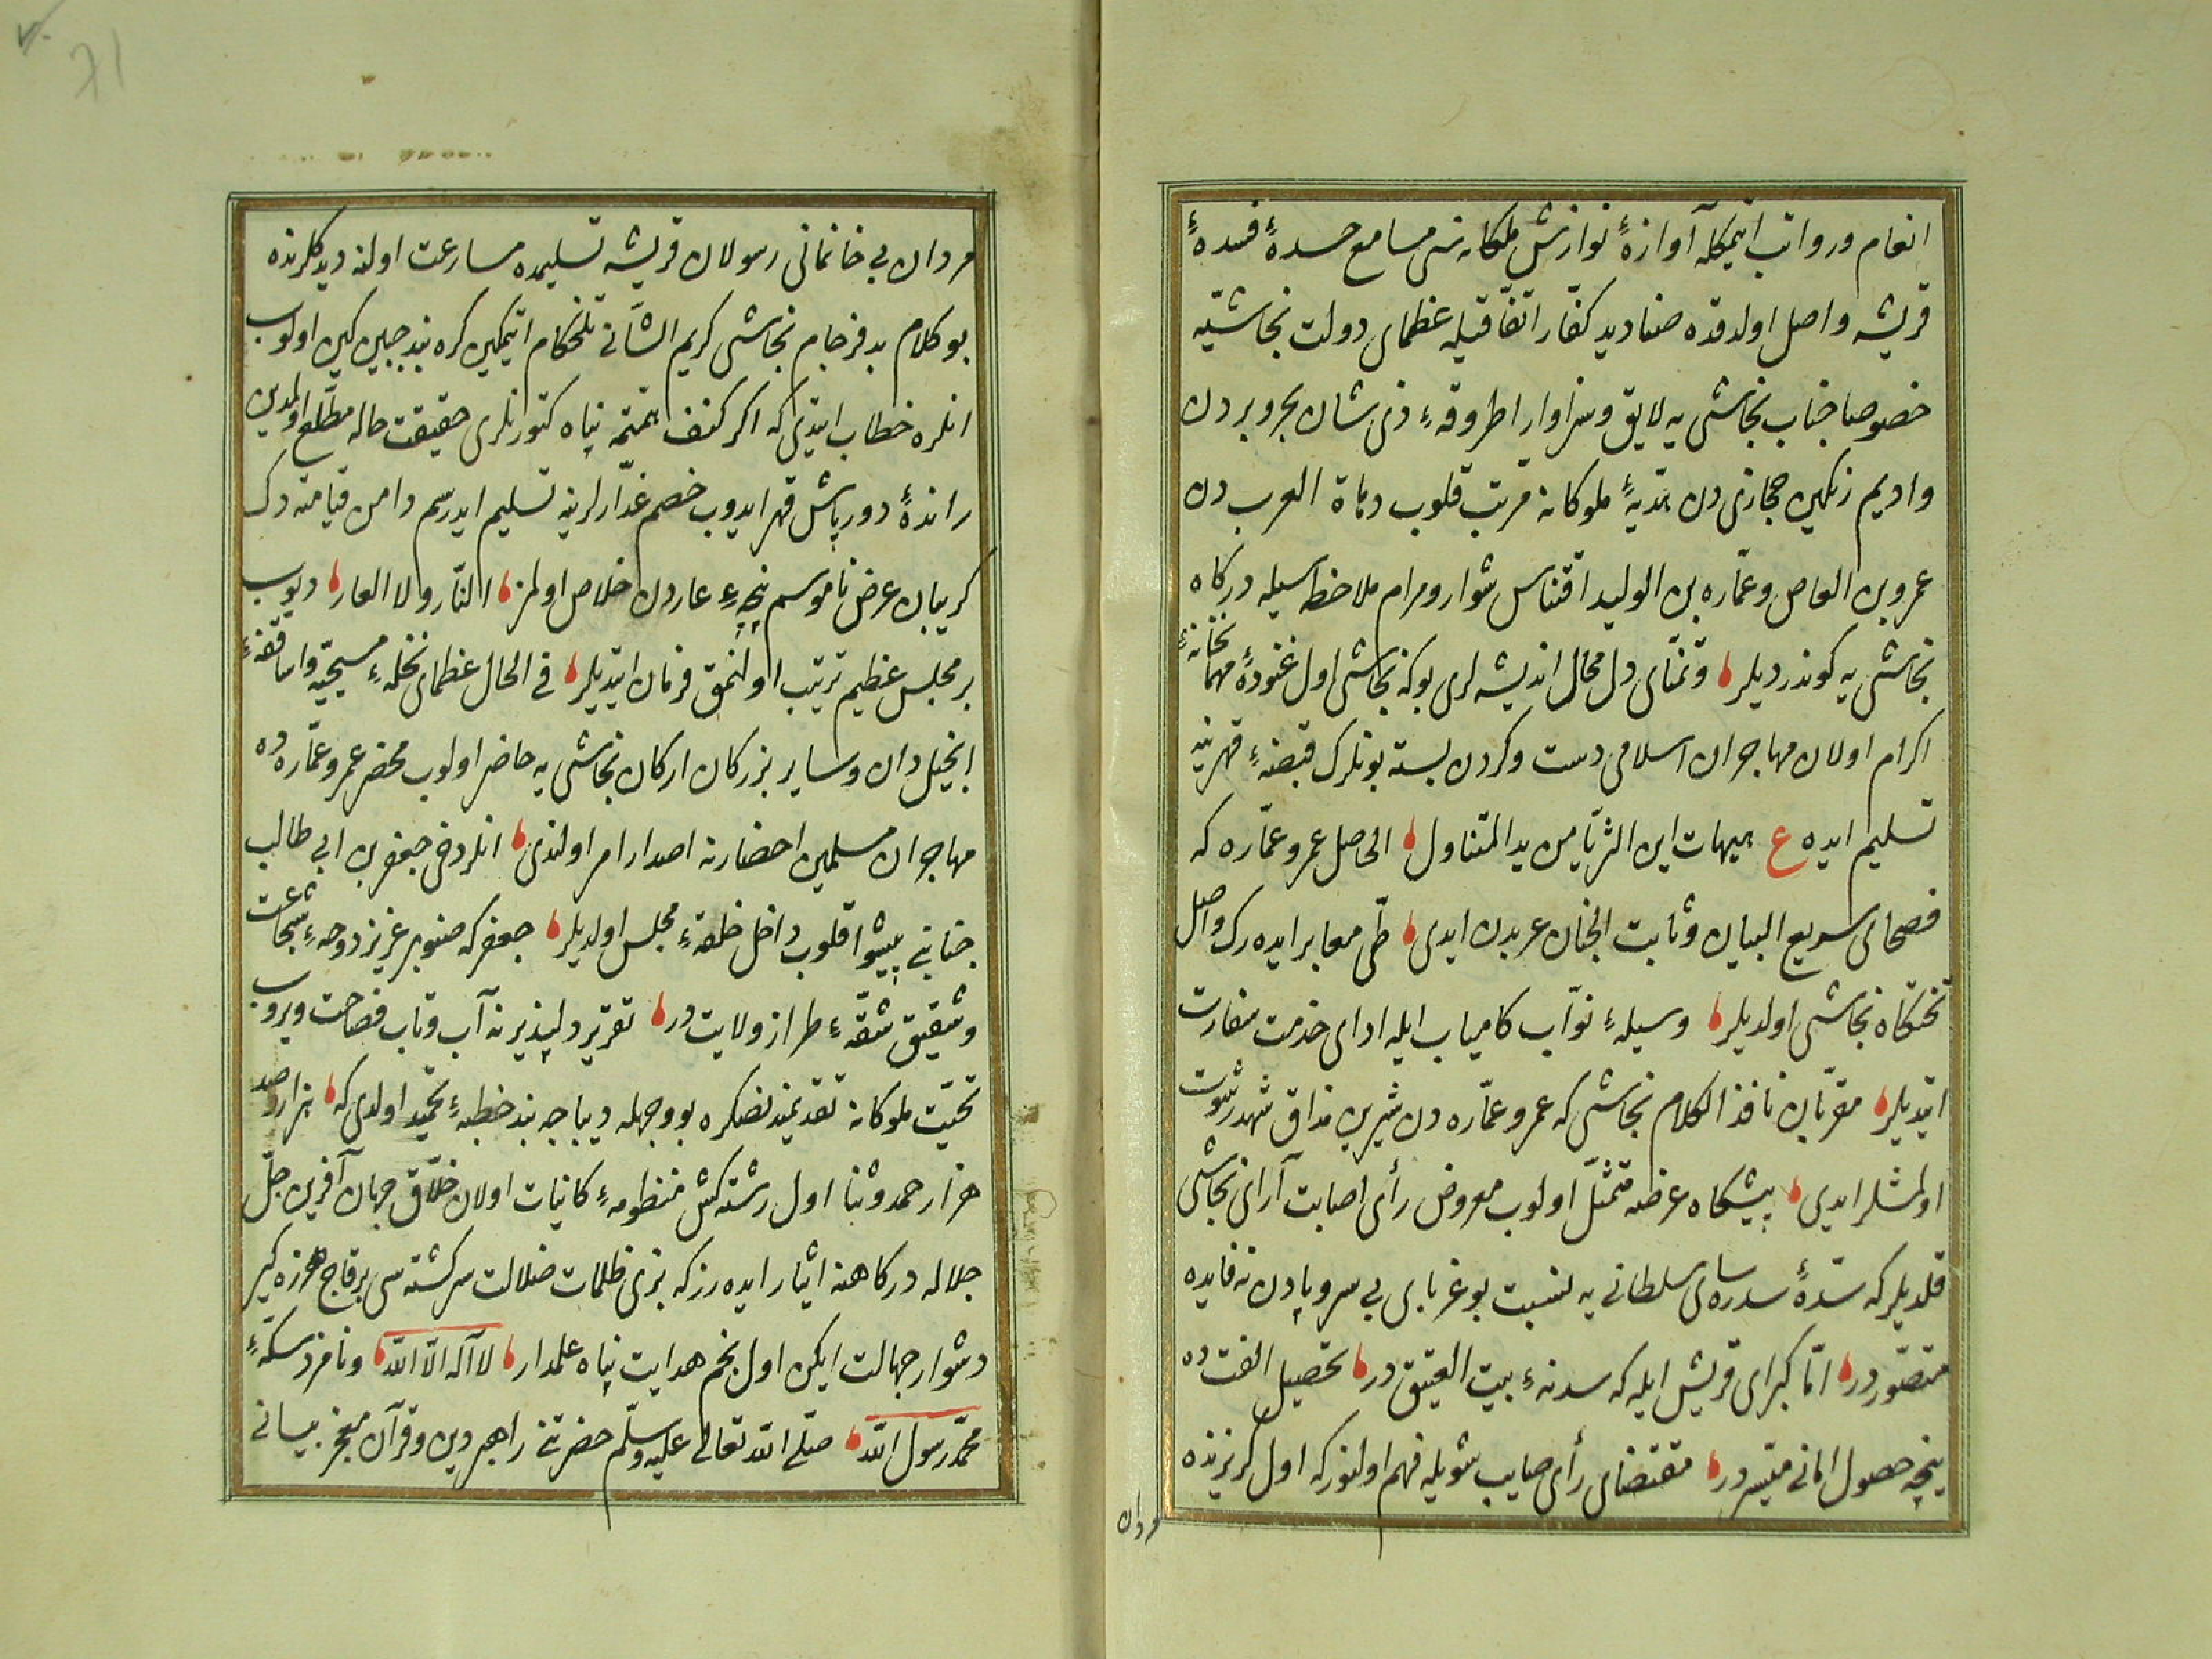 انعام و رواتب ایتمكله آوازۀ نوازش ملكانه سی مسامع حسدۀ فسدۀ
قریشه واصل اولدقده صنادید كفّار اتفاقیله عظمای دولت نجاشیّه
خصوصا جناب نجاشی یه لایق و سزاوار اطروفهٔ ذی شان بحر و بردن
و ادیم رنكین حجازی دن هدیۀ ملوكانه مرتب قلوب دهاة العرب دن
عمرو بن العاص و عمّاره بن الولید اقتناس شوارد مرام ملاحظه سیله دركاه
نجاشی یه كوندردیلر و تمنّای دل محال اندیشه لری بوكه نجاشی اول غنودۀ مهمانخانهٔ
اكرام اولان مهاجران اسلامی دست و كردن بسته بونلرك قبضهٔ قهرینه
تسلیم ایده ع هیهات این الثریّا من ید المتناول الحاصل عمرو عمّاره كه
فصحای سریع البیان و ثابت الجنان عربدن ایدی طیّ معابر ایده رك واصل
تختكاه نجاشی اولدیلر وسیلهٔ نوّاب كامیاب ایله ادای خدمت سفارت
ایتدیلر مقرّبان نافذ الكلام نجاشی كه عمرو عمّاره دن شیرین مذاق شهد رشوت
اولمشلر ایدی پیشكاه عرضه متمثّل اولوب معروض رأی اصابت آرای نجاشی
قلدیلركه سدّۀ سدره سای سلطانی یه نسبت بو غربای بی سر و پادن نه فایده
متصوّردر امّا كبرای قریش ایله كه سدنهٔ بیت العتیق در تحصیل الفت ده
نیجه حصول امانی میسّردر مقتضای رأی صایب شویله فهم اولنوركه اول كریزنده
مردان
مردان بی خانمانی رسولان قریشه تسلیمده مسارعت اولنه دیدكلرنده
بو كلام بد فرجام نجاشی كریم الشّانی تلخكام ایتمكین كره بند جبین كین اولوب
انلره خطاب ایتدی كه اكر كنف همّتمه پناه كتورنلری حقیقت حاله مطّلع اولمدین
راندۀ دورباش قهر ایدوب خصم غدّارلرینه تسلیم ایدرسم دامن قیامته دك
كریبان عرض ناموسم پنجهٔ عاردن خلاص اولمز النّار ولا العار دیوب
بر مجلس عظیم ترتیب اولنمق فرمان ایتدیلر فی الحال عظمای نحلهٔ مسیحیّه و اساقفهٔ
انجیل دان و سایر بزركان اركان نجاشی یه حاضر اولوب محضر عمرو عمّاره ده
مهاجران مسلمین احضارنه اصدار امر اولندی انلر دخی جعفر بن ابی طالب
جنابنی پیشوا قلوب داخل حلقهٔ مجلس اولدیلر جعفر كه صنوبر عزیز دوحهٔ شجاعت
و شقیق شقّهٔ طراز ولایت در تقریر دلپذیرنه آب و تاب فصاحت ویروب
تحیّت ملوكانه تقدیمندنصكره بو وجهله دیباجه بند خطبهٔ تحمید اولدی كه هزار صد
هزار حمد و ثنا اول رشته كش منظومهٔ كائنات اولان خلّاق جهان آفرین جلّ
جلاله دركاهنه ایثار ایده رز كه بزی ظلمات ضلالت سركشته سی بر قاچ هرزه كیر
دشوار جهالت ایكن اول نجم هدایت پناه علمدار لا آله الّا اللّه و نامزد سكّهٔ
محمّد رسول اللّه صلّی اللّه تعالی علیه وسلّم حضرتنی راهبر دین و قرآن معجز بیانی
71